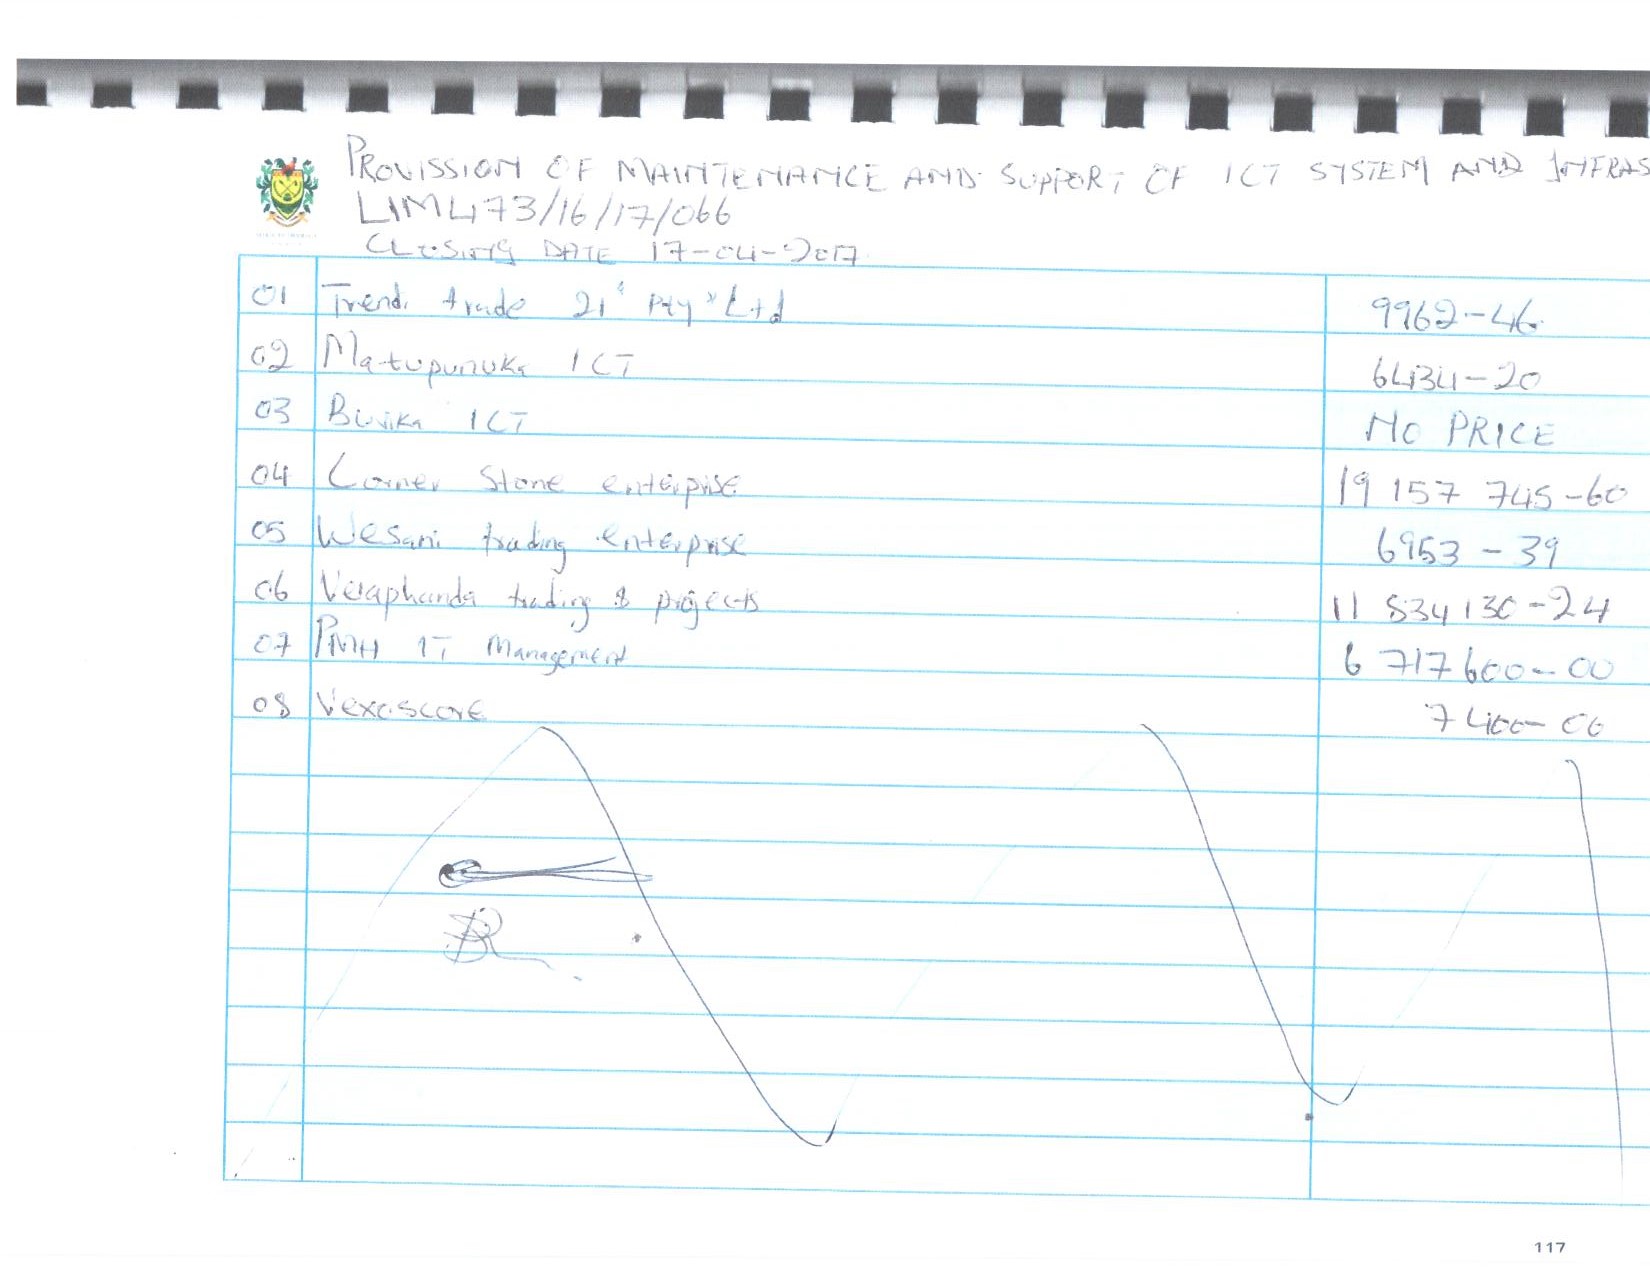 PROVISSION OF MAINTENANCE AND SUPPORT OF ICT SYSTEM AND INFRAS
LIM473/16/17/066
CLOSING DATE 17-04-2017
01 Trend trade 21 Pty Ltd 9962-46
02 Matupunuka ICT 6434-20
03 Buvika ICT NO PRICE
04 Corner Stone enterprise 19 157 745-60
05 Wesani trading enterprise 6953-39
06 Veraphanda trading & projects 11 834 130-24
07 PMH IT Management 6 717 600-00
08 Vexoscore 7 400-00
117